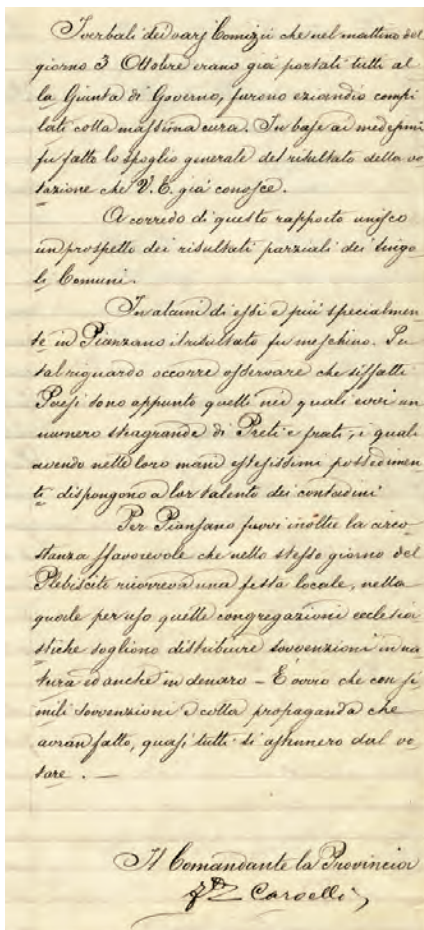 I verbali dei varj Comizii che nel mattino del
giorno 3 Ottobre erano già portati tutti al
la Giunta di Governo, furono eziandio compi
lati colla massima cura. In base ai medesimi
fu fatto lo spoglio generale del risultato della vo
tazione che V. E. già conosce.
A corredo di questo rapporto unisco
un prospetto dei risultati parziali dei singo
li Comuni.
In alcuni di essi e più specialmen
te in Pianzano il risultato fu meschino. Su
tal riguardo occorre osservare che siffatti
Paesi sono appunto quelli nei quali evvi un
numero stragrande di Preti e frati, i quali
avendo nelle loro mani estesissimi possedimen
ti dispongono a lor talento dei contadini
Per Pianzano fuvvi inoltre la circo
stanza sfavorevole che nello stesso giorno del
Plebiscito ricorreva una festa locale, nella
quale per uso quelle congregazioni ecclesia
stiche sogliono distribuire sovvenzioni in na
tura ed anche in denaro - È ovvio che con si
mili sovvenzioni e colla propaganda che
avran fatto, quasi tutti si astennero dal vo
tare. -
Il Comandante la Provincia
Caroelli